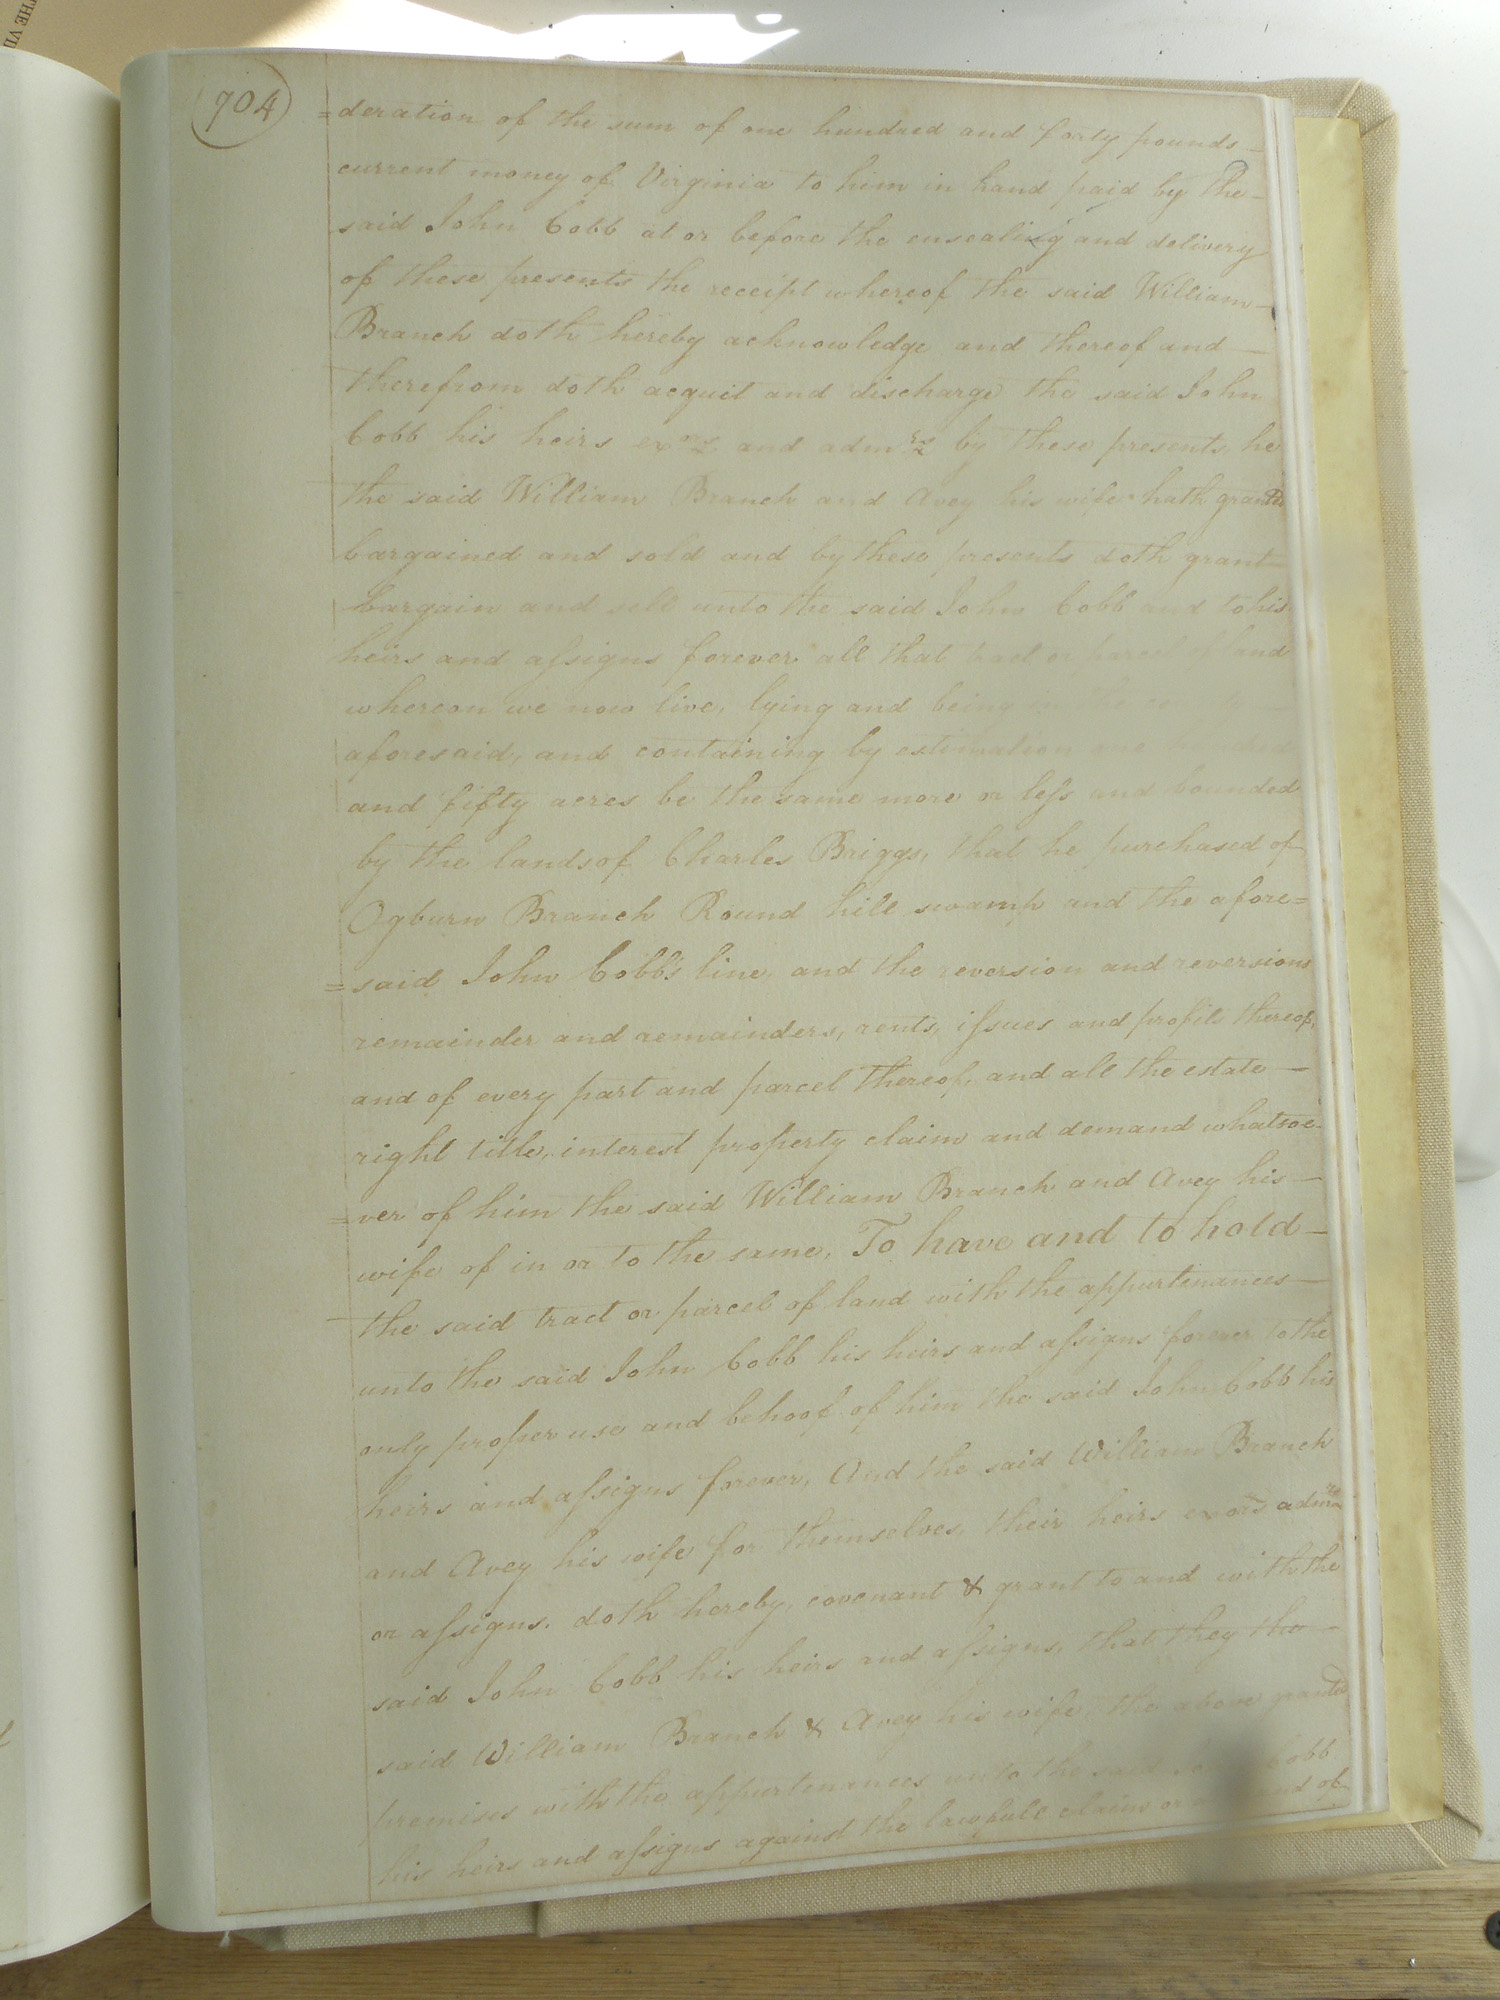 THE VI
704
=deration of the sum of one hundred and forty pounds
current money of Virginia to him in hand paid by the
said John Cobb at or before the ensealing and delivery
of these presents the receipt whereof the said William
Branch doth hereby acknowledge and thereof and
therefrom doth acquit and discharge the said John
Cobb his heirs exors and admrs by these presents, he
the said William Branch and Avey his wife hath granted
bargained and sold and by these presents doth grant
bargain and sell unto the said John Cobb and to his
heirs and assigns forever all that tract or parcel of land
whereon we now live, lying and being in the
aforesaid, and containing by estimation one hundred
and fifty acres be the same more or less and bounded
by the lands of Charles Briggs, that he purchased of
Ogburn Branch Round hill swamp and the afore=
=said John Cobb's line, and the reversion and reversions
remainder and remainders, rents, issues and profits thereof,
and of every part and parcel thereof, and all the estate
right title, interest property claim and demand whatsoe-
=ver of him the said William Branch and Avey his
wife of in or to the same, To have and to hold
the said tract or parcel of land with the appurtenances
unto the said John Cobb his heirs and assigns forever to the
only proper use and behoof of him the said John Cobb his
heirs and assigns forever, And the said William Branch
and Avey his wife for themselves their heirs exors admrs
or assigns, doth hereby, covenant & grant to and with the
said John Cobb his heirs and assigns, that they the
said William Branch & Avey his wife, the above granted
premises with the appurtenances unto the said Cobb
his heirs and assigns against the lawfull claim or of